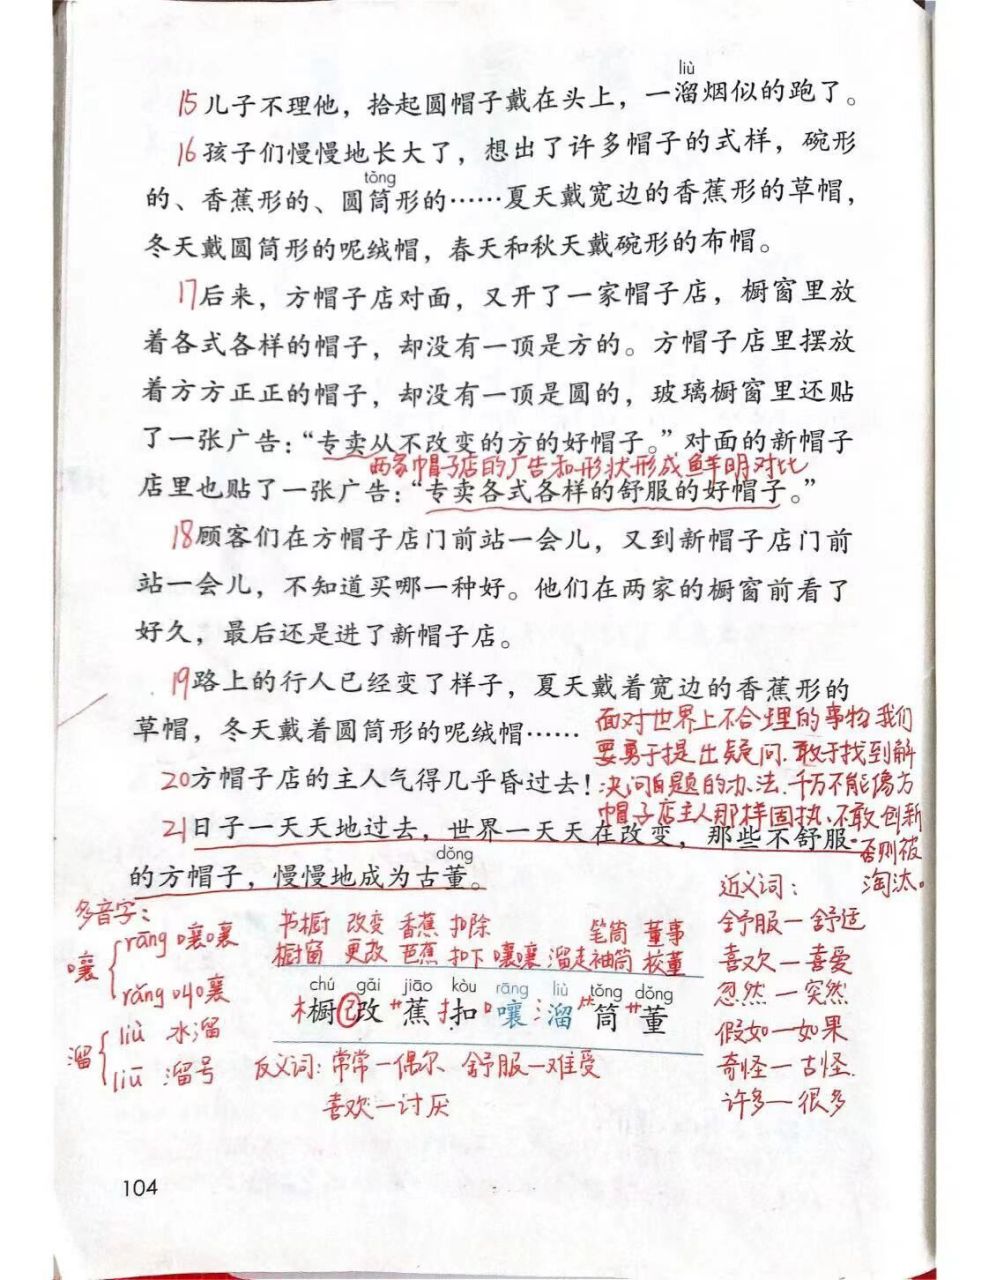 liù
15儿子不理他，拾起圆帽子戴在头上，一溜烟似的跑了。
16孩子们慢慢地长大了，想出了许多帽子的式样，碗形
tǒng
的、香蕉形的、圆筒形的……夏天戴宽边的香蕉形的草帽，
冬天戴圆筒形的呢绒帽，春天和秋天戴碗形的布帽。
17后来，方帽子店对面，又开了一家帽子店，橱窗里放
着各式各样的帽子，却没有一顶是方的。方帽子店里摆放
着方方正正的帽子，却没有一顶是圆的，玻璃橱窗里还贴
了一张广告：“专卖从不改变的方的好帽子。”对面的新帽子
两家帽子店的广告和形状形成鲜明对比
店里也贴了一张广告：“专卖各式各样的舒服的好帽子。”
18顾客们在方帽子店门前站一会儿，又到新帽子店门前
站一会儿，不知道买哪一种好。他们在两家的橱窗前看了
好久，最后还是进了新帽子店。
19路上的行人已经变了样子，夏天戴着宽边的香蕉形的
草帽，冬天戴着圆筒形的呢绒帽……
面对世界上不合理的事物我们
要勇于提出疑问.敢于找到解
20方帽子店的主人气得几乎昏过去！
决问题的办法.千万不能像方
帽子店主人那样固执.不敢创新
否则被
淘汰。
21日子一天天地过去，世界一天天在改变，那些不舒服
dǒng
的方帽子，慢慢地成为古董。
多音字：
嚷 rāng 嚷嚷
rǎng 叫嚷
溜 liù 水溜
liū 溜号
书橱 改变 香蕉 扣除 笔筒 董事
橱窗 更改 芭蕉 扣下 嚷嚷 溜走 袖筒 校董
chú gǎi jiāo kòu rāng liù tǒng dǒng
木橱 己改 艹蕉 扌扣 口嚷 氵溜 ⺮筒 艹董
反义词：常常—偶尔 舒服—难受
喜欢—讨厌
近义词：
舒服—舒适
喜欢—喜爱
忽然—突然
假如—如果
奇怪—古怪.
许多—很多
104